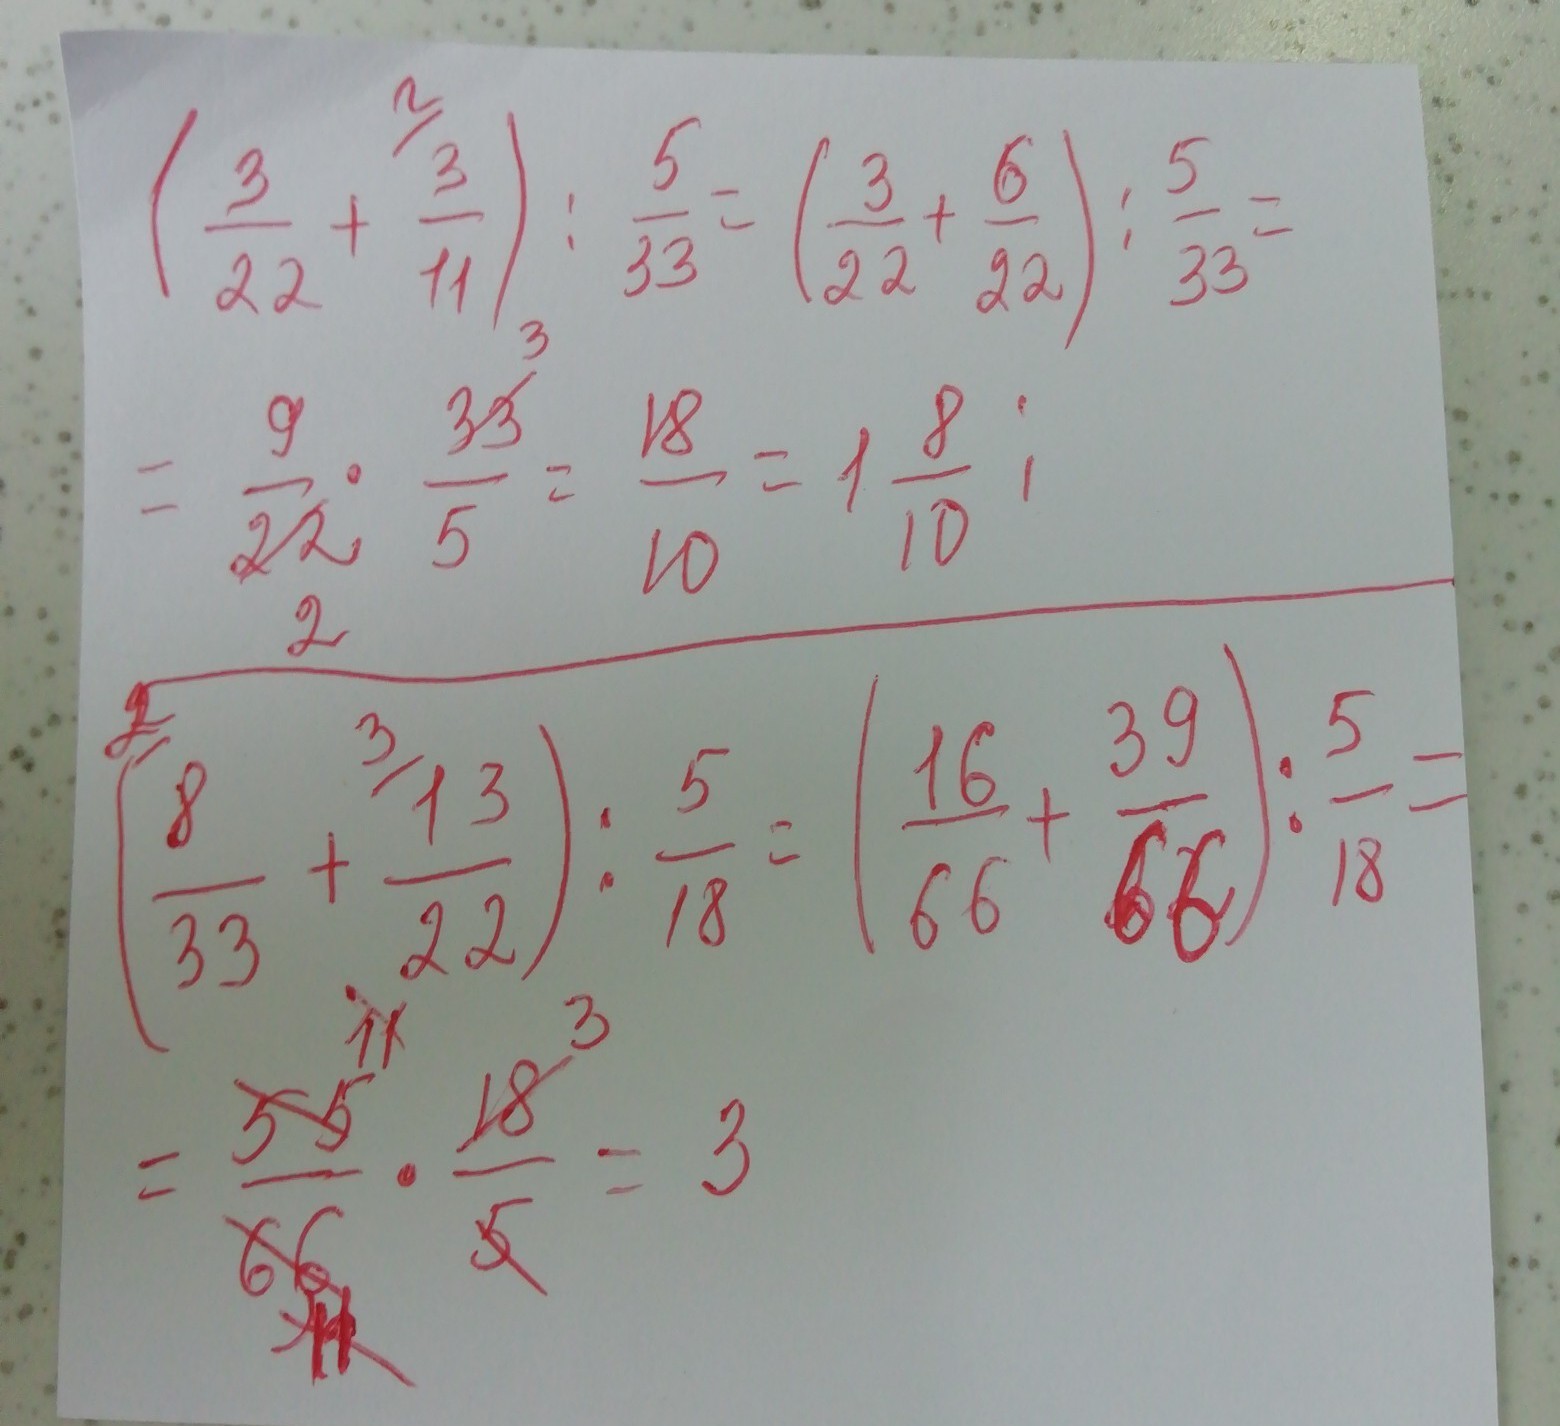 (3/22 + 2/ 3/11) : 5/33 = (3/22 + 6/22) : 5/33 =
= 9/22 2 · 33 3/5 = 18/10 = 1 8/10 ;
(2/ 8/33 + 3/ 13/22) : 5/18 = (16/66 + 39/66) : 5/18 =
= 55 11/66 11 · 18 3/5 = 3